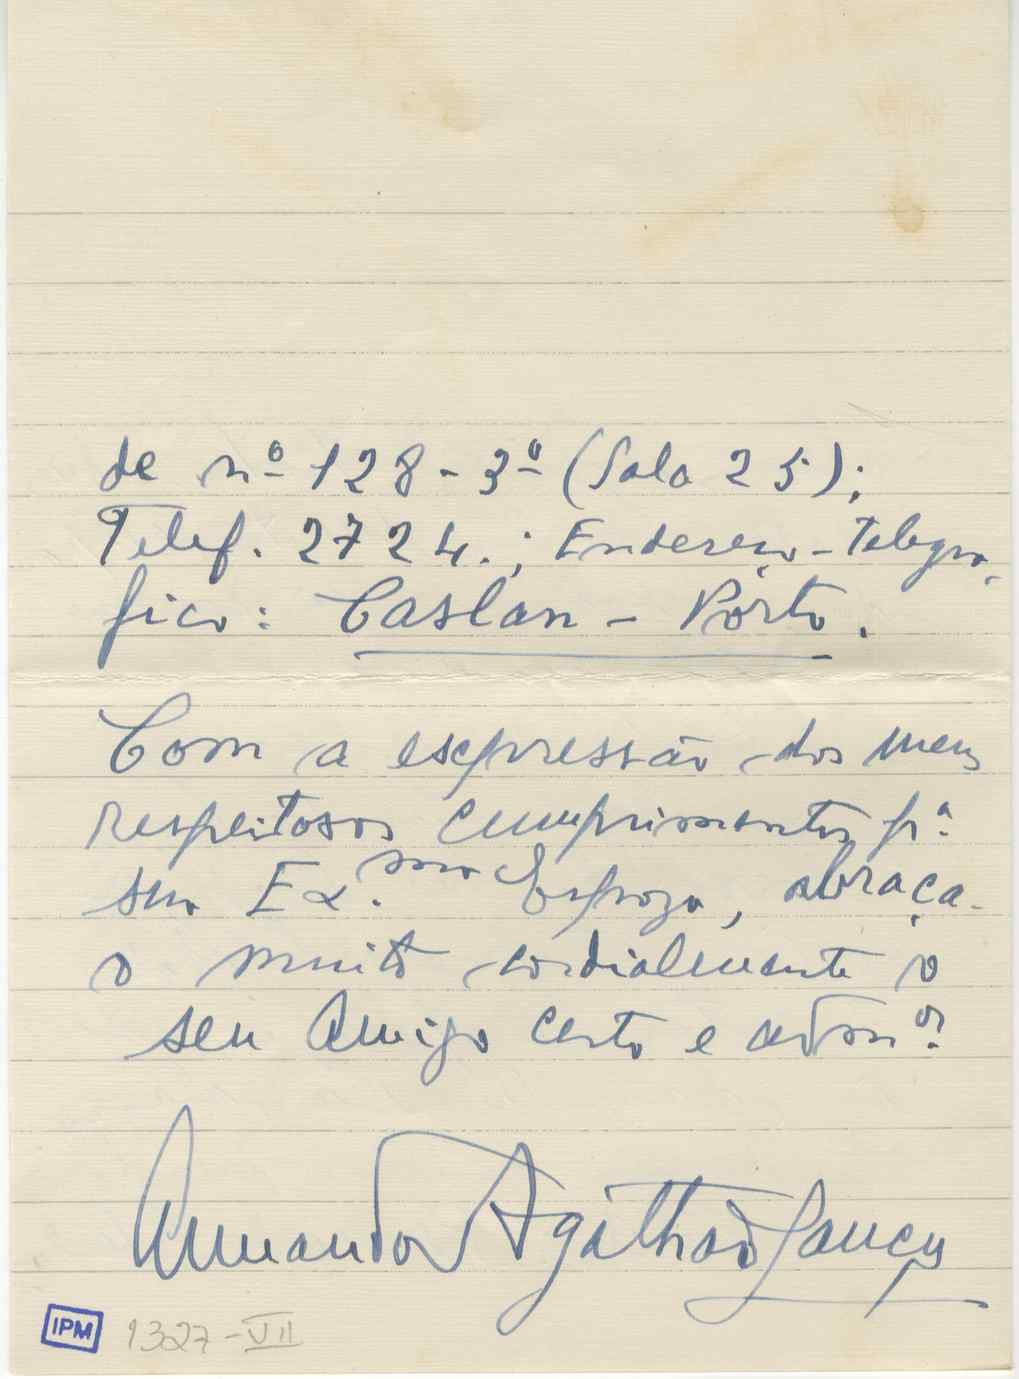 de nº 128 - 3º (Sala 25);
Telef. 2724.; Endereço-Telegrá
fico: Caslan - Porto.
Com a expressão dos meus
respeitosos cumprimentos pª.
sua Ex.ma Esposa, abraça-
o muito cordialmente o
seu Amigo certo e admor.
Armando Agathão Lança
IPM 1327-VII